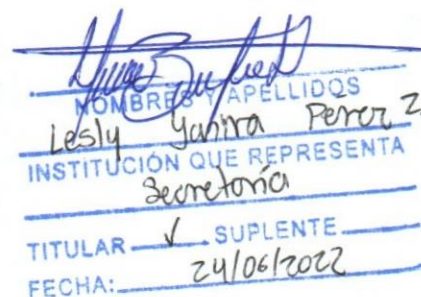 NOMBRES Y APELLIDOS
Lesly Yanira Perez Z
INSTITUCIÓN QUE REPRESENTA
Secretaría
TITULAR ✓ SUPLENTE
FECHA: 24/06/2022